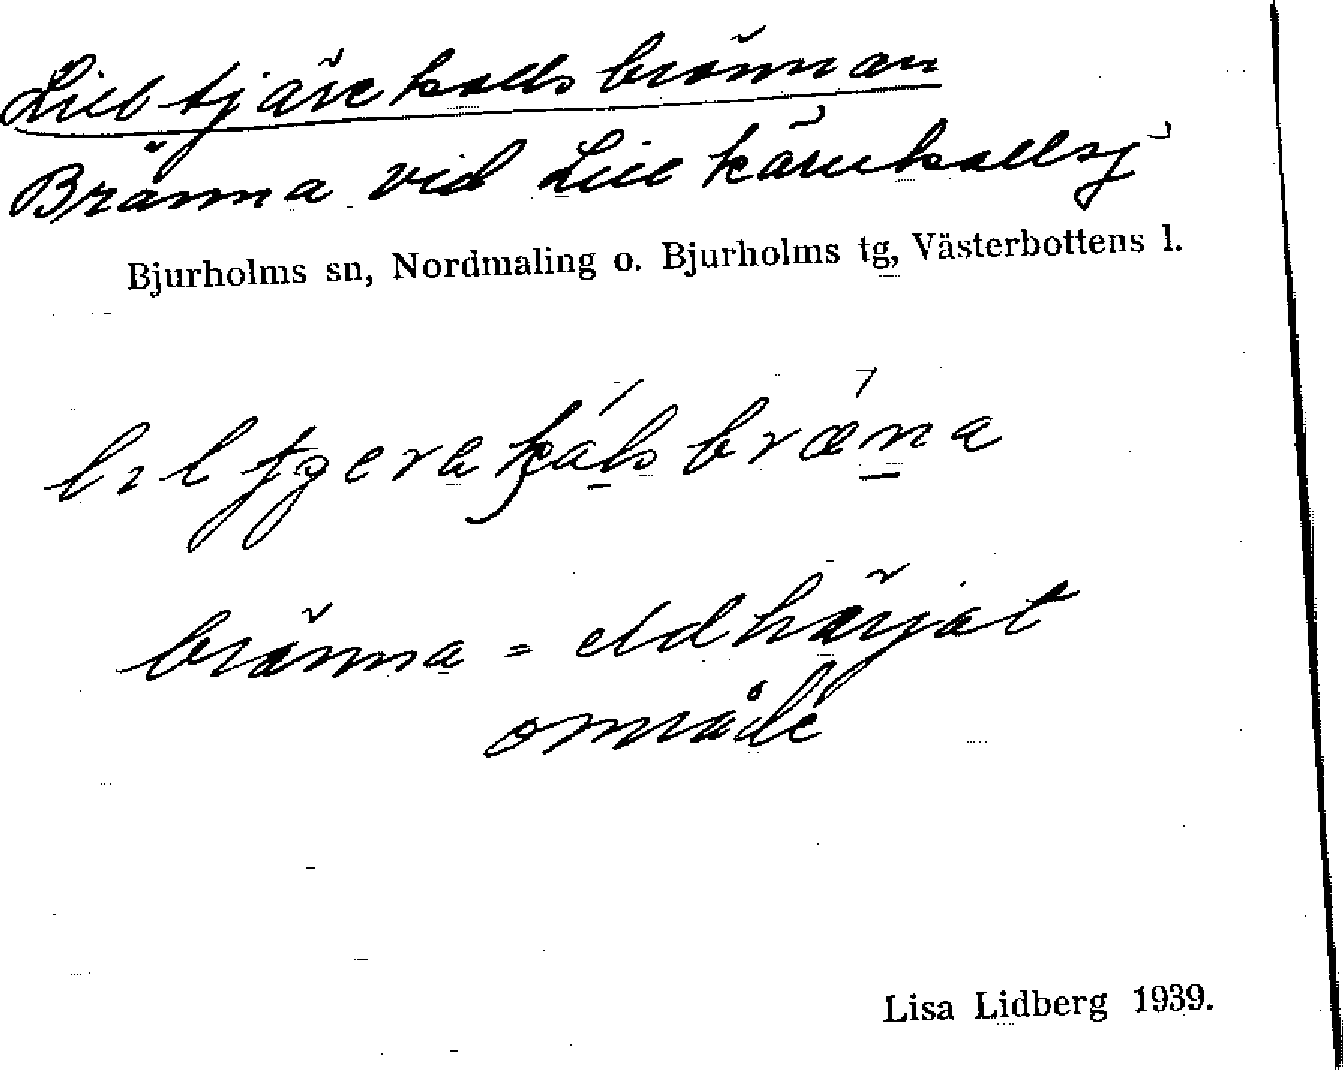 Lilltjärekallsbrännan
Bränna vid Lill kärukallsj
Bjurholms sn, Nordmaling o. Bjurholms tg, Västerbottens l.
bränna = eldhärjat
område
Lisa Lidberg 1939.